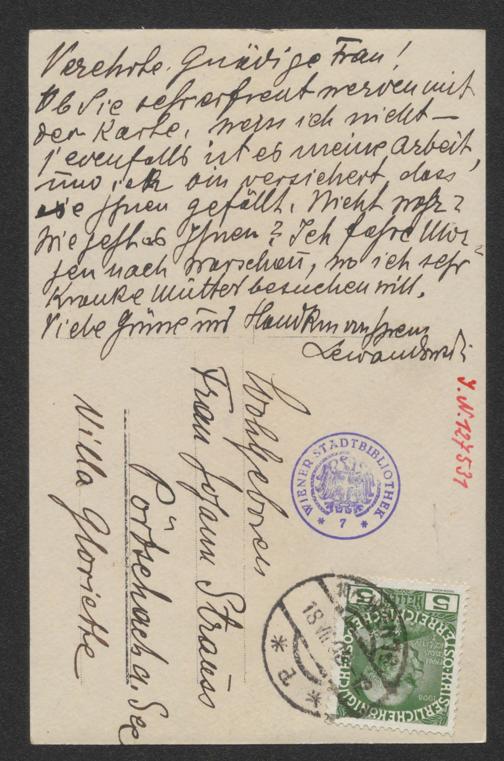 Verehrte Gnädige Frau!
Ob Sie sehr erfreut werden mit
der Karte, weiss ich nicht —
jevenfalls ist es meine Arbeit,
und ich bin versichert, dass
sie Ihnen gefällt. Nicht wahr?
Wie geht es Ihnen? Ich fahre Mor-
gen nach Warschau, wo ich sehr
Kranke Mutter besuchen will.
Viele Grüsse und
Lewandowski
J.N. 127531
WIENER STADTBIBLIOTHEK
* 7 *
Wohlgeboren
Frau Johann Strauss
Pörtschach a. See
Villa Gloriette
5 5
1908
18 VII